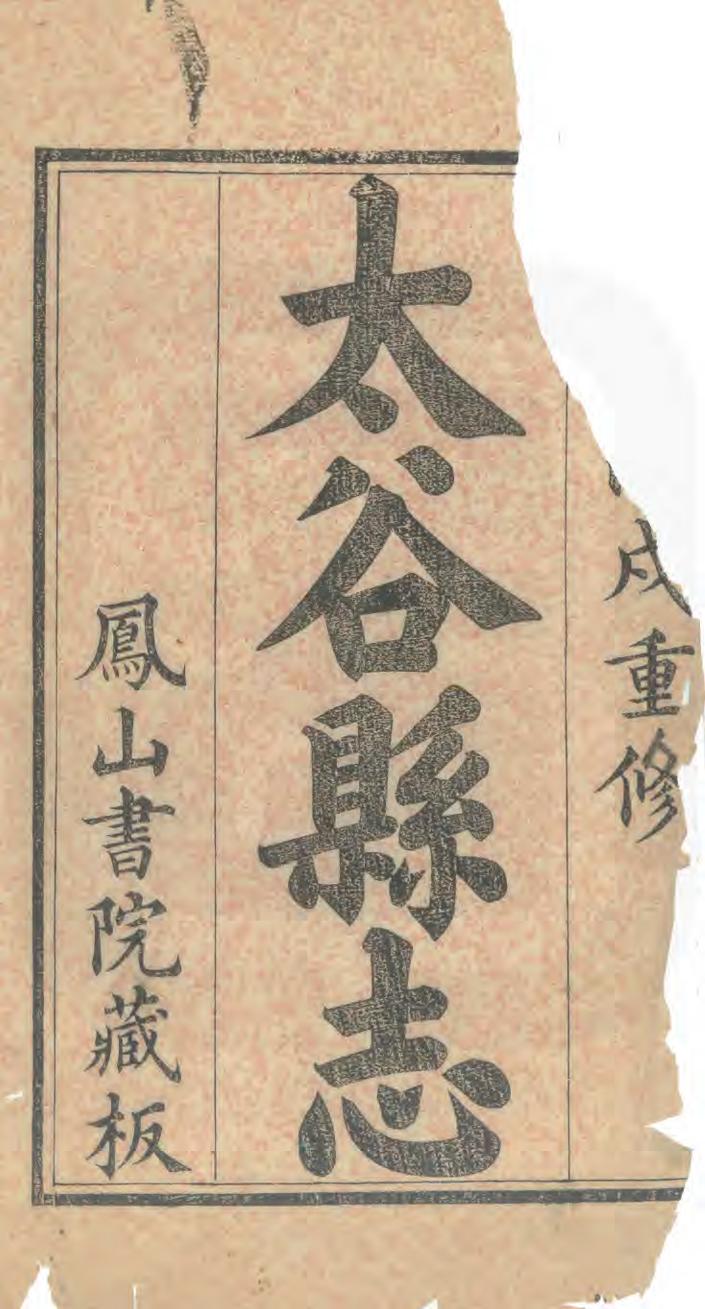 戌重修
太谷縣志
鳳山書院藏板